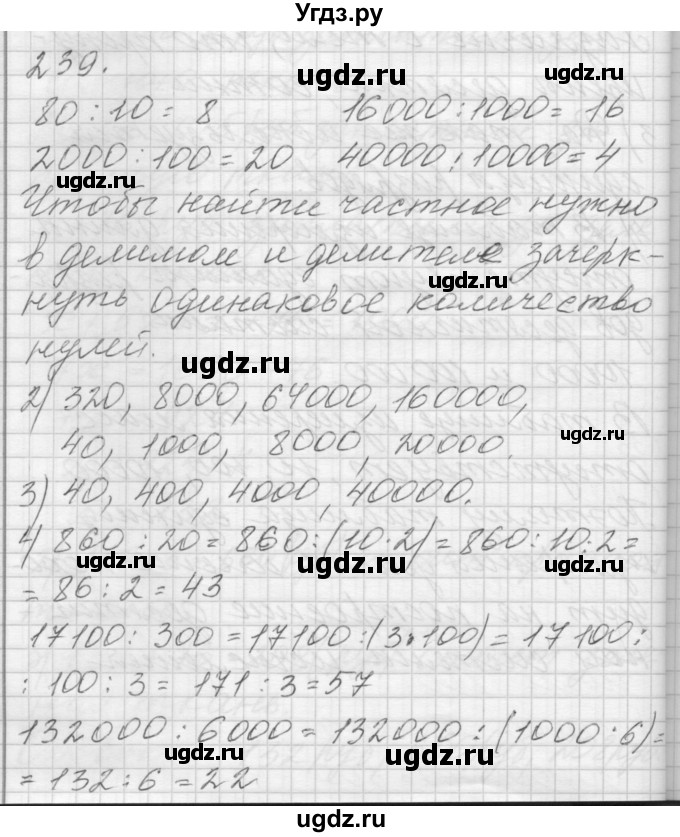 Угдз.ру
239.
ugdz.ru
ugdz.ru
80 : 10 = 8 16000 : 1000 = 16
2000 : 100 = 20 40000 : 10000 = 4
ugdz.ru
Чтобы найти частное нужно
в делимом и делителе зачерк-
ugdz.ru
нуть одинаковое количество
нулей.
ugdz.ru
2) 320, 8000, 64000, 160000,
40, 1000, 8000, 20000.
ugdz.ru
3) 40, 400, 4000, 40000.
4) 860 : 20 = 860 : (10 · 2) = 860 : 10 : 2 =
ugdz.ru
ugdz.ru
ugdz.ru
= 86 : 2 = 43
17100 : 300 = 17100 : (3 · 100) = 17100 :
: 100 : 3 = 171 : 3 = 57
132000 : 6000 = 132000 : (1000 · 6) =
ugdz.ru
ugdz.ru
= 132 : 6 = 22
ugdz.ru